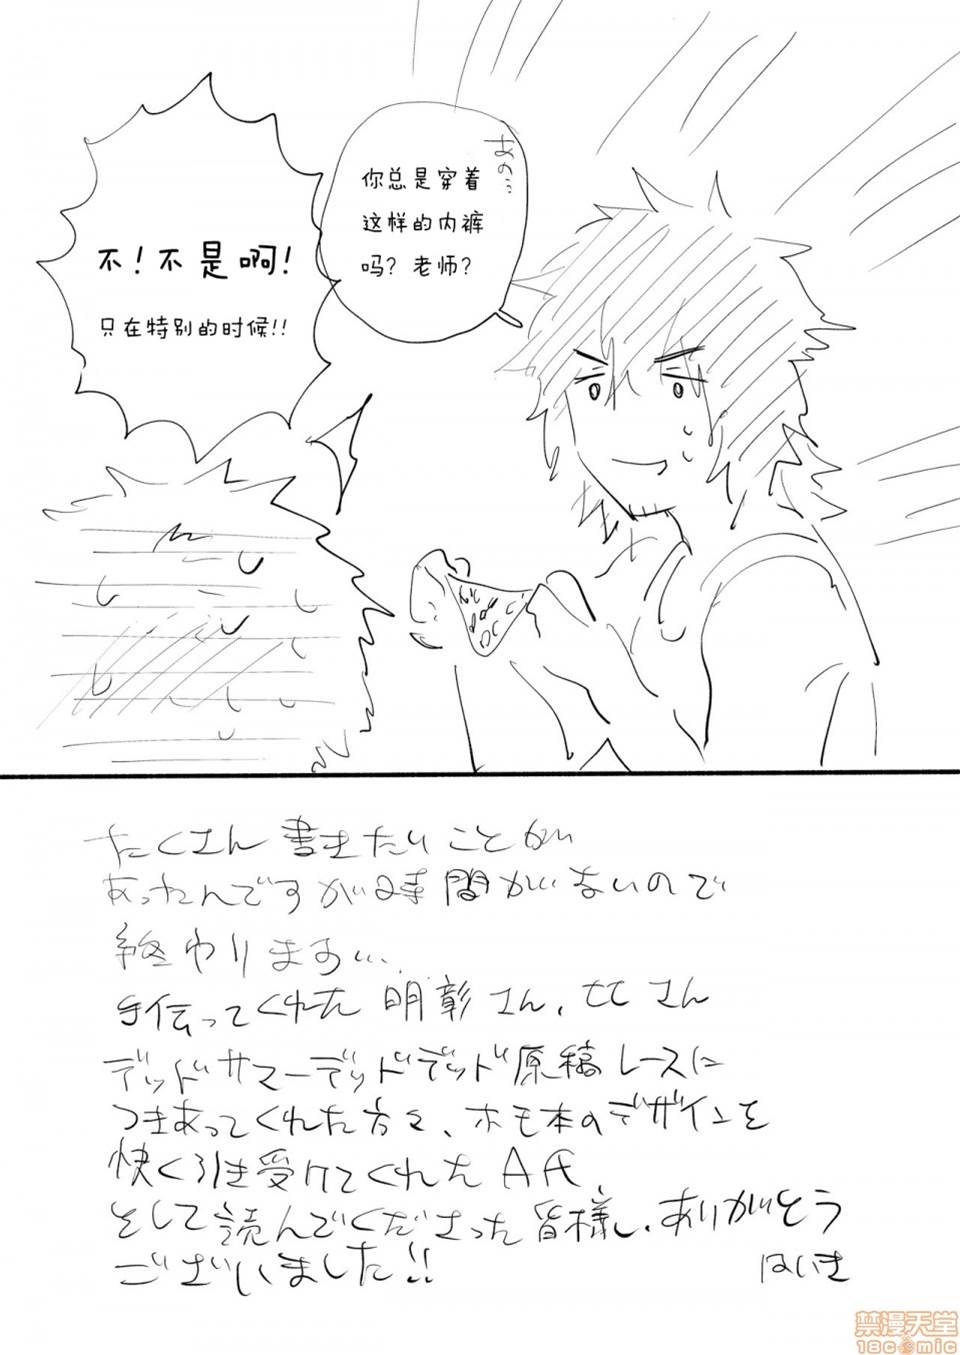 あの…
你总是穿着
这样的内裤
吗？老师？
不！不是啊！
只在特别的时候!!
たくさん書きたいことが
あったんですが時間がないので
終わります…
手伝ってくれた明彰さん、ヒヒさん
デッドサマーデッドデッド原稿レースに
つきあってくれた方々、ホモ本のデザインを
快く引き受けてくれたA氏、
そして読んでくださった皆様、ありがとう
ございました!!
はいき
禁漫天堂
18comic